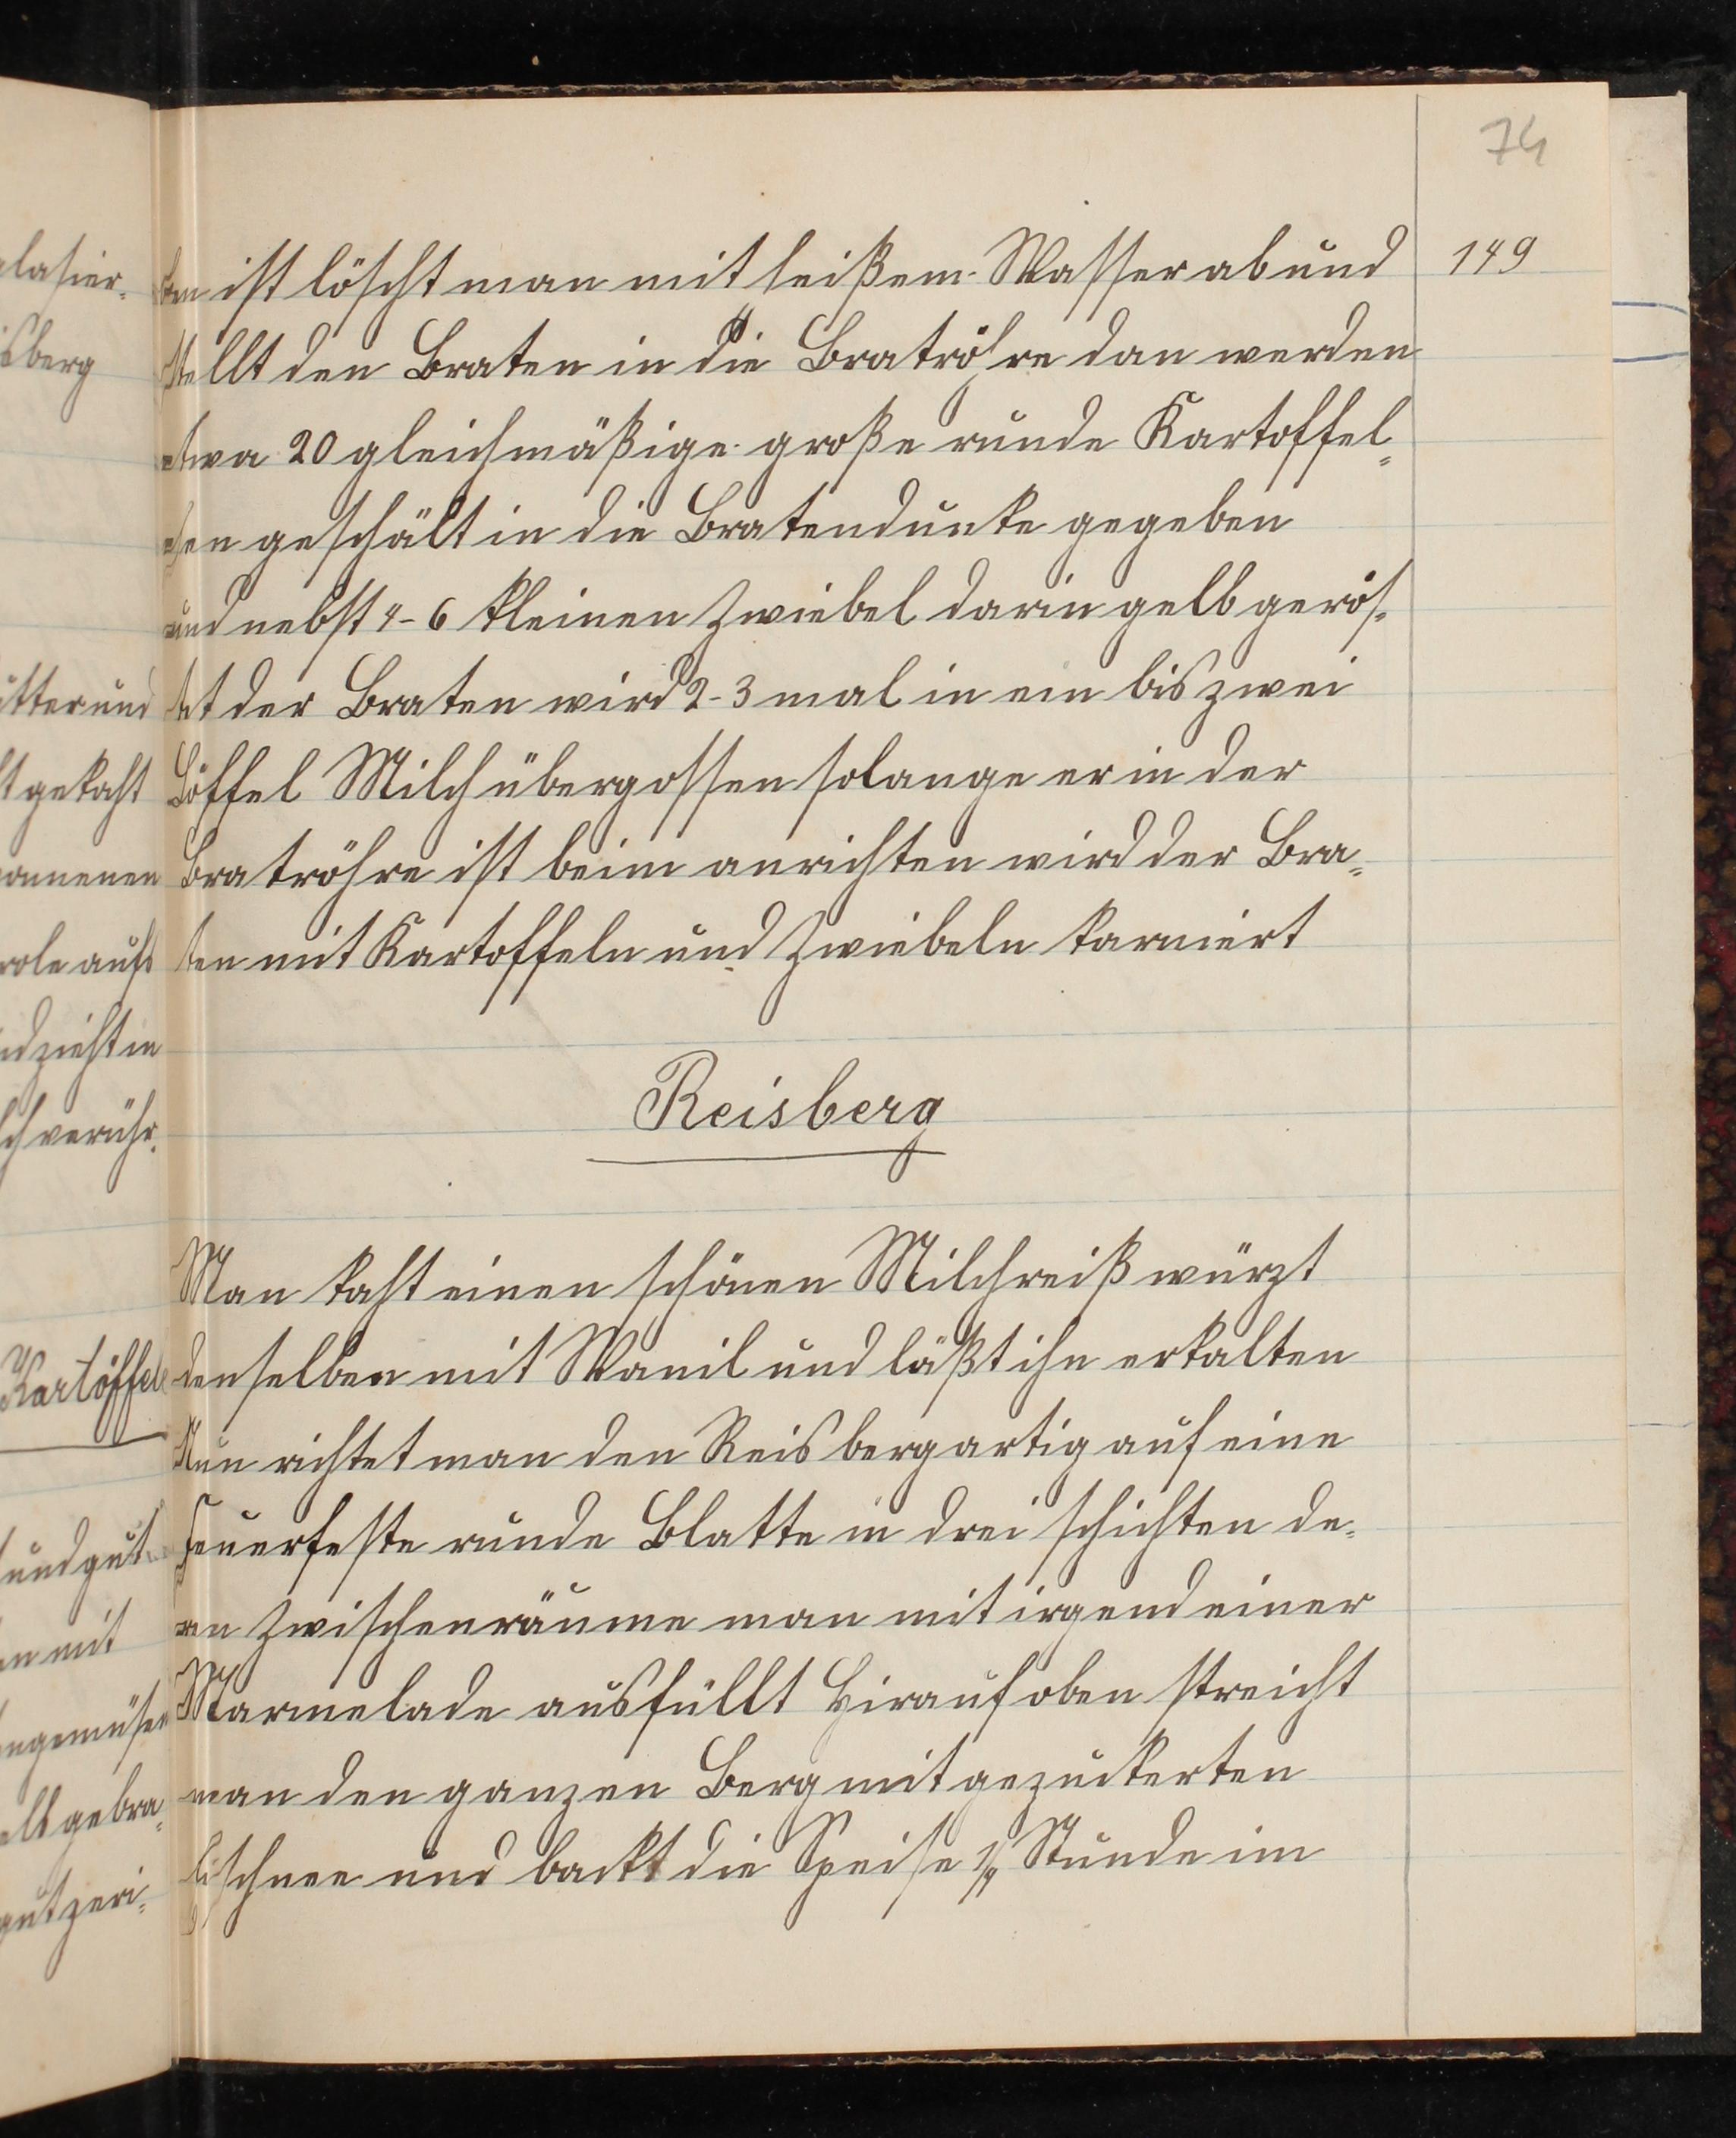 74
149
ten ist löscht man mit heißem Wasser ab und
stellt den Braten in die Bratröhre dan werden
etwa 20 gleichmäßige große runde Kartoffel-
chen geschält in die Bratendunke gegeben
und nebst 4-6 kleinen Zwiebel darin gelb gerös-
tet der Braten wird 2-3 mal in ein bis zwei
Löffel Milch übergossen solange er in der
Bratröhre ist beim anrichten wird der Bra-
ten mit Kartoffeln und Zwiebeln karniert
Reisberg
Man kocht einen schönen Milchreiß würzt
denselben mit Wanil und läßt ihn erkalten
Nun richtet man den Reis bergartig auf eine
feuerfeste runde Blatte in drei schichten de-
ren Zwischenräume man mit irgend einer
Marmelade ausfüllt Hirauf oben streicht
man den ganzen Berg mit gezuckerten
Eischnee und backt die Speise 1/4 Stunde im
glasier-
isberg
utter und
gekocht
onnenen
role aufs
nd zieht in
verrühr-
Kartöffele
und gut
mit
gemüse
gelb gebra-
gut zeri-